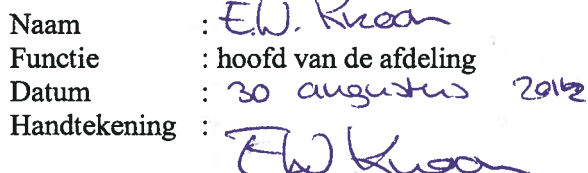 Naam : E.W. Kroon
Functie : hoofd van de afdeling
Datum : 30 augustus
Handtekening : EW Kroon